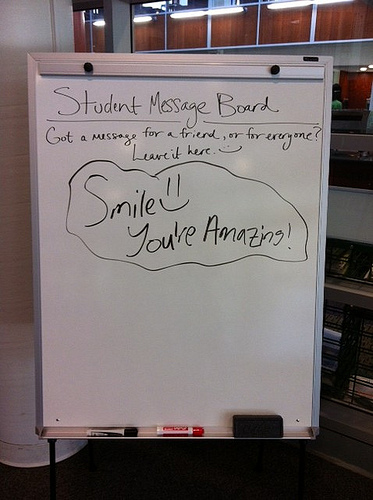 Student Message Board
Got a message for a friend, or for everyone?
Leave it here. :)
Smile!!
You're Amazing!